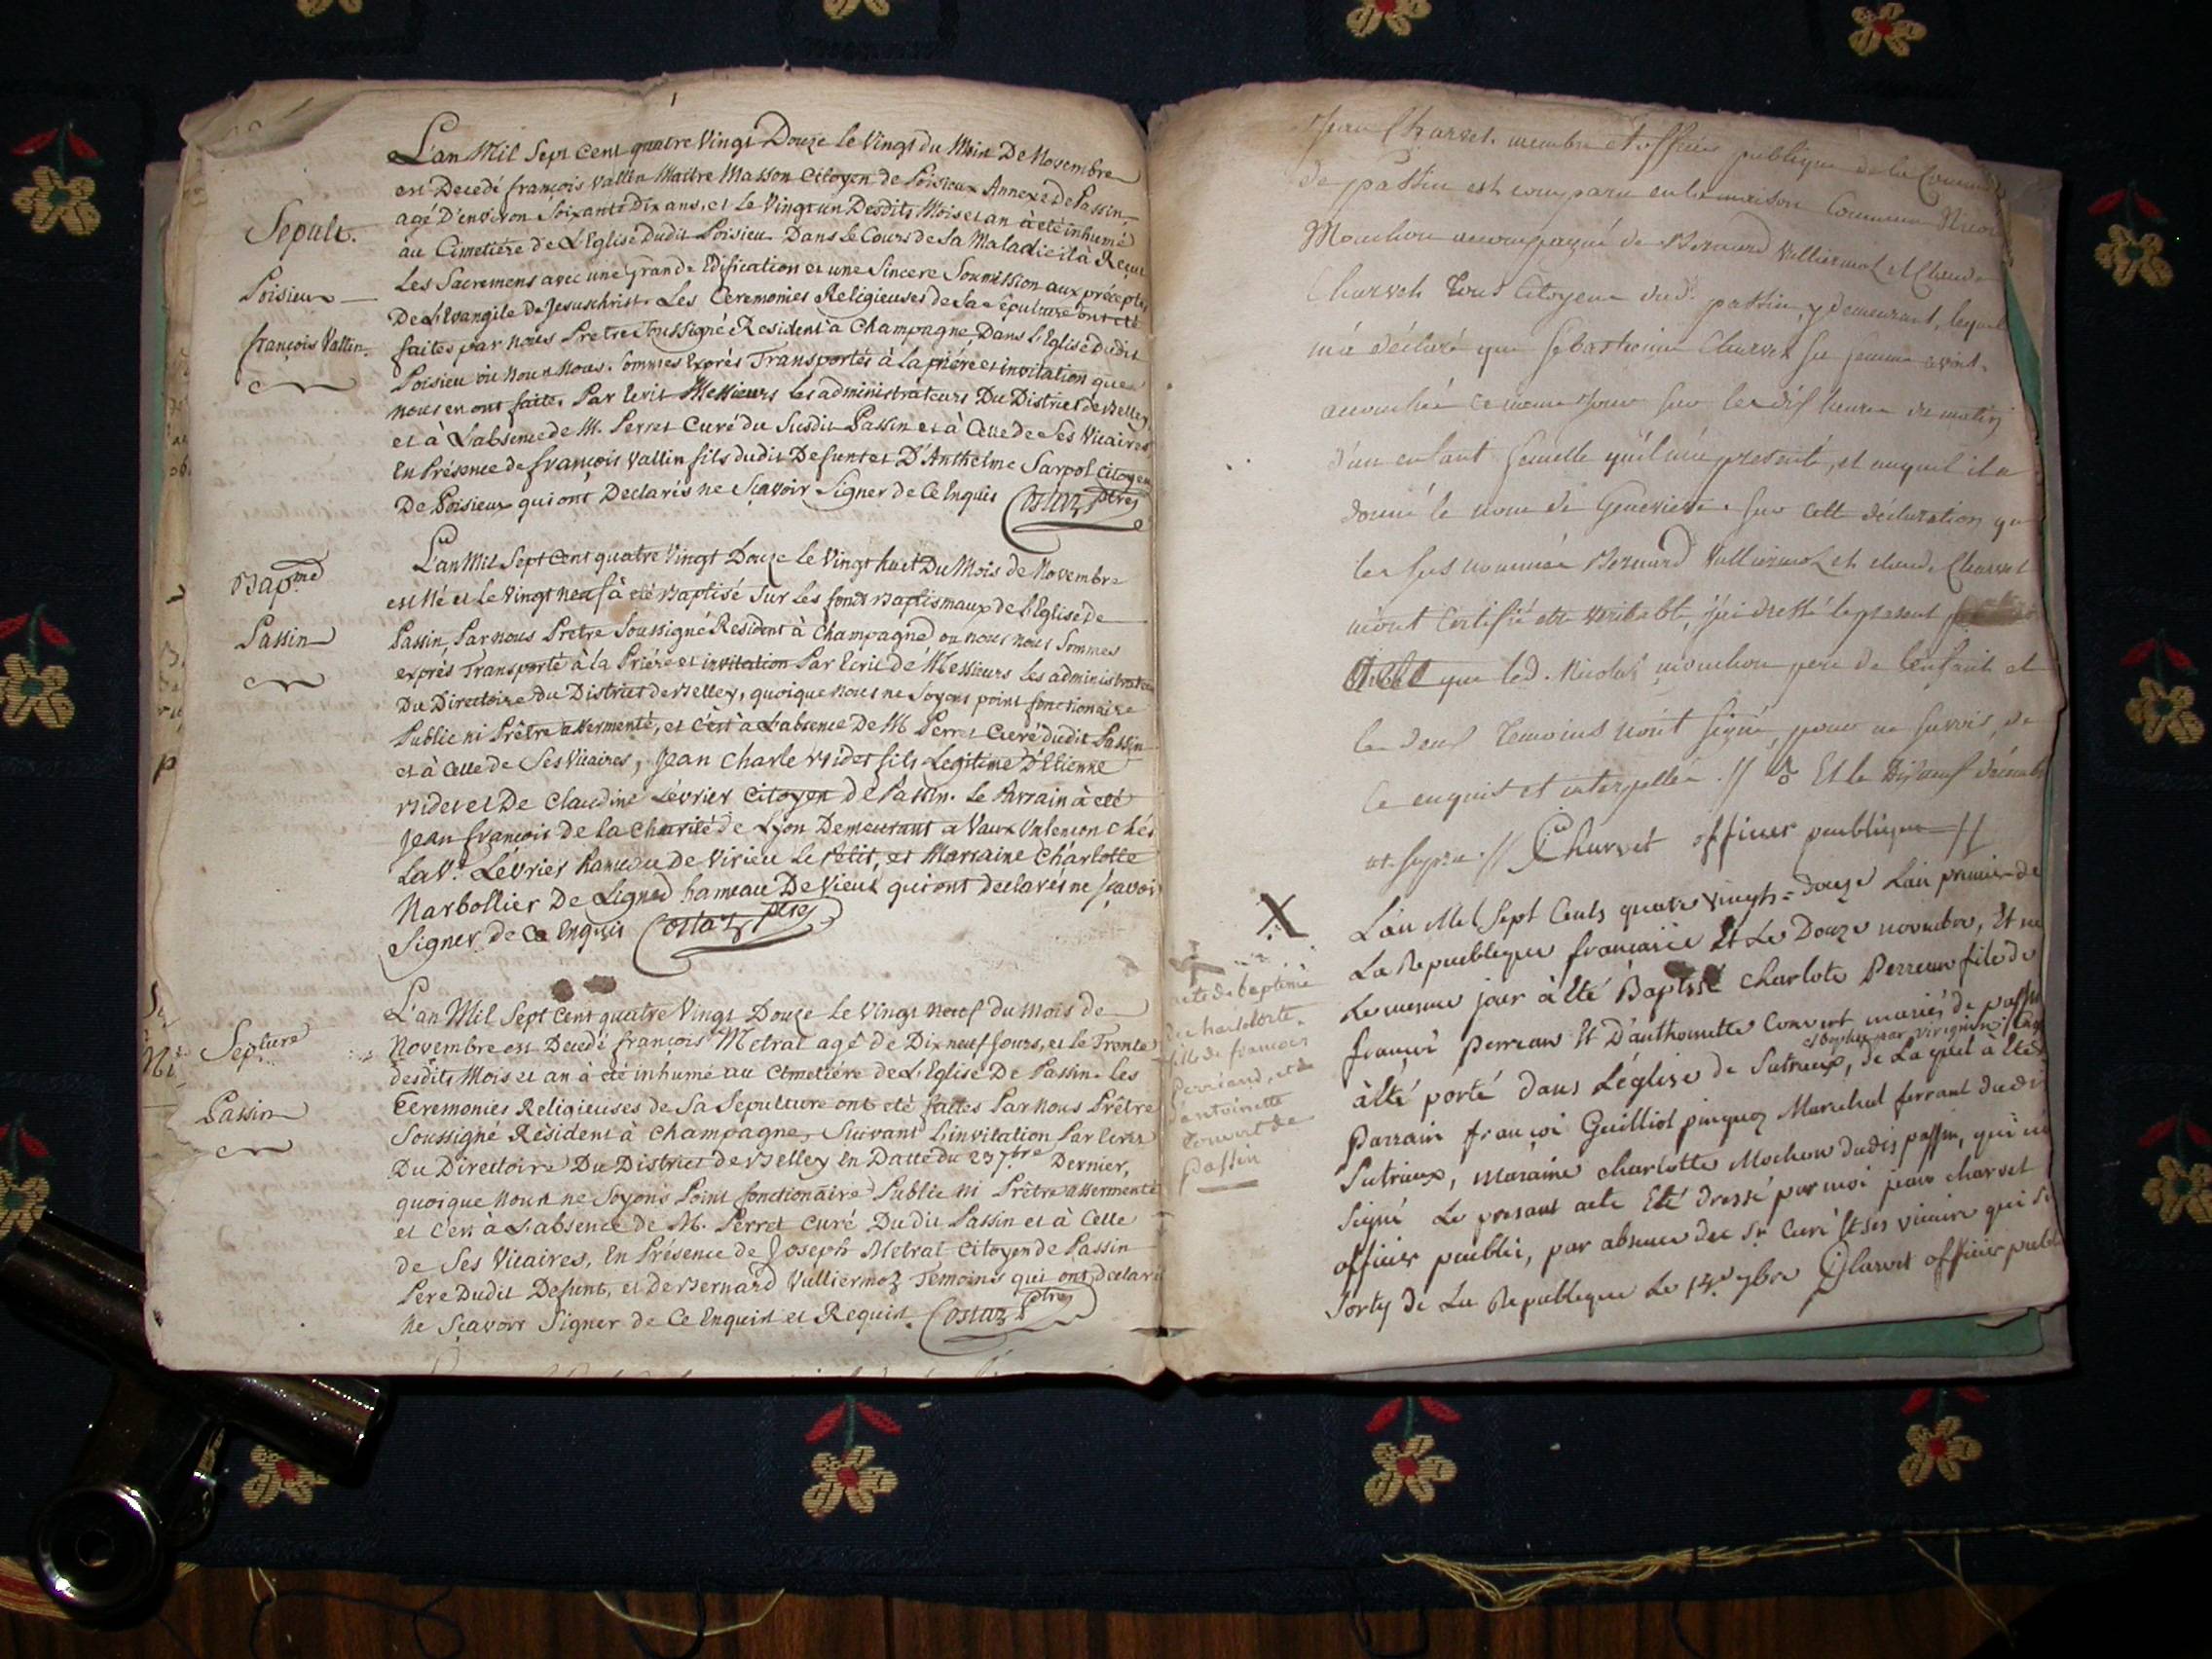 L'an Mil Sept Cent quatre Vingt Douze le Vingt du Mois De Novembre
est Decedé françois Vallin Maitre Masson Citoyen de Poisieux Annexe De Passin
agé D'environ Soixante Dix ans, et le Vingt un Desdits Mois et an à eté inhumé
Sepult.
au Cimetiére de L'Eglise Dudit Poisieu. Dans le Cours de Sa Maladie il à Reçut
Les Sacremens avec une Grande Edification et une Sincere Soumission aux précepte
Poisieux
De L'Evangile De Jesuschrist. Les Ceremonies Religieuses de Sa Sepulture ont eté
françois Vallin
faites par nous Pretre Soussigné Resident à Champagne, Dans L'Eglise Dudit
Poisieu où Nous Nous Sommes Exprés Transportés à La priére et invitation que
nous en ont faite, Par Ecrit Messieurs les administrateurs Du District de Belley
et à L'absence de M. Perret Curé du Susdit Passin et à Celle de Ses Vicaires
En Présence de françois Vallin fils dudit Defunt et D'Anthelme Sarpol Citoyen
De Poisieux qui ont Declarés ne Sçavoir Signer de Ce Enquis Costaz Ptre
L'an Mil Sept Cent quatre Vingt Douze le Vingt huit Du Mois de Novembre
Bap.me
est Né et le Vingt neuf à eté Baptisé Sur Les fonts Baptismaux de L'Eglise de
Passin
Passin, Par nous Pretre Soussigné Resident à Champagne ou nous nous Sommes
exprés Transporté à la Priére et invitation Par Ecrit de Messieurs les administrateurs
Du Directoire Du District de Belley, quoique nous ne Soyons point fonctionaire
Public ni Prêtre assermenté, et c'est à L'absence De M Perret Curé dudit Passin
et à Celle de Ses Vicaires, Jean Charle Bidet fils Legitime D'Etienne
Bidet et De Claudine Lévrier Citoyen de Passin. Le Parrain à eté
Jean françois de la Charité de Lyon Demeurant a Vaux Valencon Chés
La V.e Lévrier hameau de Virieu Le Petit, et Marraine Charlotte
Narbollier De Lignod hameau De Vieux qui ont declarés ne Sçavoir
Signer de Ce Enquis Costaz Ptre
L'an Mil Sept Cent quatre Vingt Douze Le Vingt Neuf du Mois de
Sepr.ture
Novembre est Decedé françois Metral agé de Dix neuf Jours, et le Trente
desdits Mois et an à eté inhumé au Cimetiére de L'Eglise De Passin. les
Passin
Ceremonies Religieuses de Sa Sepulture ont eté faites Par Nous Prêtre
Soussigné Résident à Champagne, Suivant L'invitation Par Ecrit
Du Directoire Du District de Belley en Datte du 23 7.bre Dernier,
quoique nous ne Soyons Point fonctionaire Public ni Prêtre assermenté
et C'est à L'absence de M. Perret Curé Dudit Passin et à Celle
de Ses Vicaires, En Présence de Joseph Metral Citoyen de Passin
Pere Dudit Defunt, et De Bernard Vulliermoz Temoins qui ont declaré
ne Sçavoir Signer de Ce Enquist et Requist. Costaz Ptre
Jean Charvet. membre et officier publique de la Commune
de passin est comparu en la maison Commune Nicolas
Mouchon accompagné de Bernard Vulliermoz et Claude
Charvet Tous Citoyens dud.t passin, y demeurant, lequel
m'a déclaré que Sébastienne Charvet sa femme avoit
accouchée ce meme jour sur les dix heures du matin
d'un enfant femelle qu'il m'a presenté, et auquel il a
donné le nom de Genevieve. sur cette déclaration que
les sus nommés Bernard Vulliermoz et claude Charvet
m'ont Certifié etre veritable, j'ai dressé le present
Acte que led. Nicolas mouchon pere de l'enfant et
les deux temoins n'ont signé, pour ne savoir, de
Ce enquis et interpellés. // Et le Dixneuf décembre
ut supra. // Charvet officier publique //
X
L'an Mil Sept Cents quatre vingts = douze L'an premier de
La Republique francaise Et Le Douze novembre, Et né
Le meme jour à Eté Baptisé Charlote Perreau file de
françoi Perreau Et D'anthoinette Convert mariés de passin
et baptisé par viriginin
à été porté dans L'église de Sutrieux, de La quel à Eté
Parrain françoi Guilliot pinquoz Marechal ferrant dudit
Sutrieux, Maraine charlotte Mochon dudit passin, qui n'a
Signé Le presant acte Eté dressé par moi jean charvet
officier peublic, par absence des Sr Curé Et ses vicaire qui Son
Sorty de La Republique Le 14 9bre Charvet officier publi
acte de baptême
de charlotte
fille de francois
Perréand, et de
dantoinette
Convert de
Passin